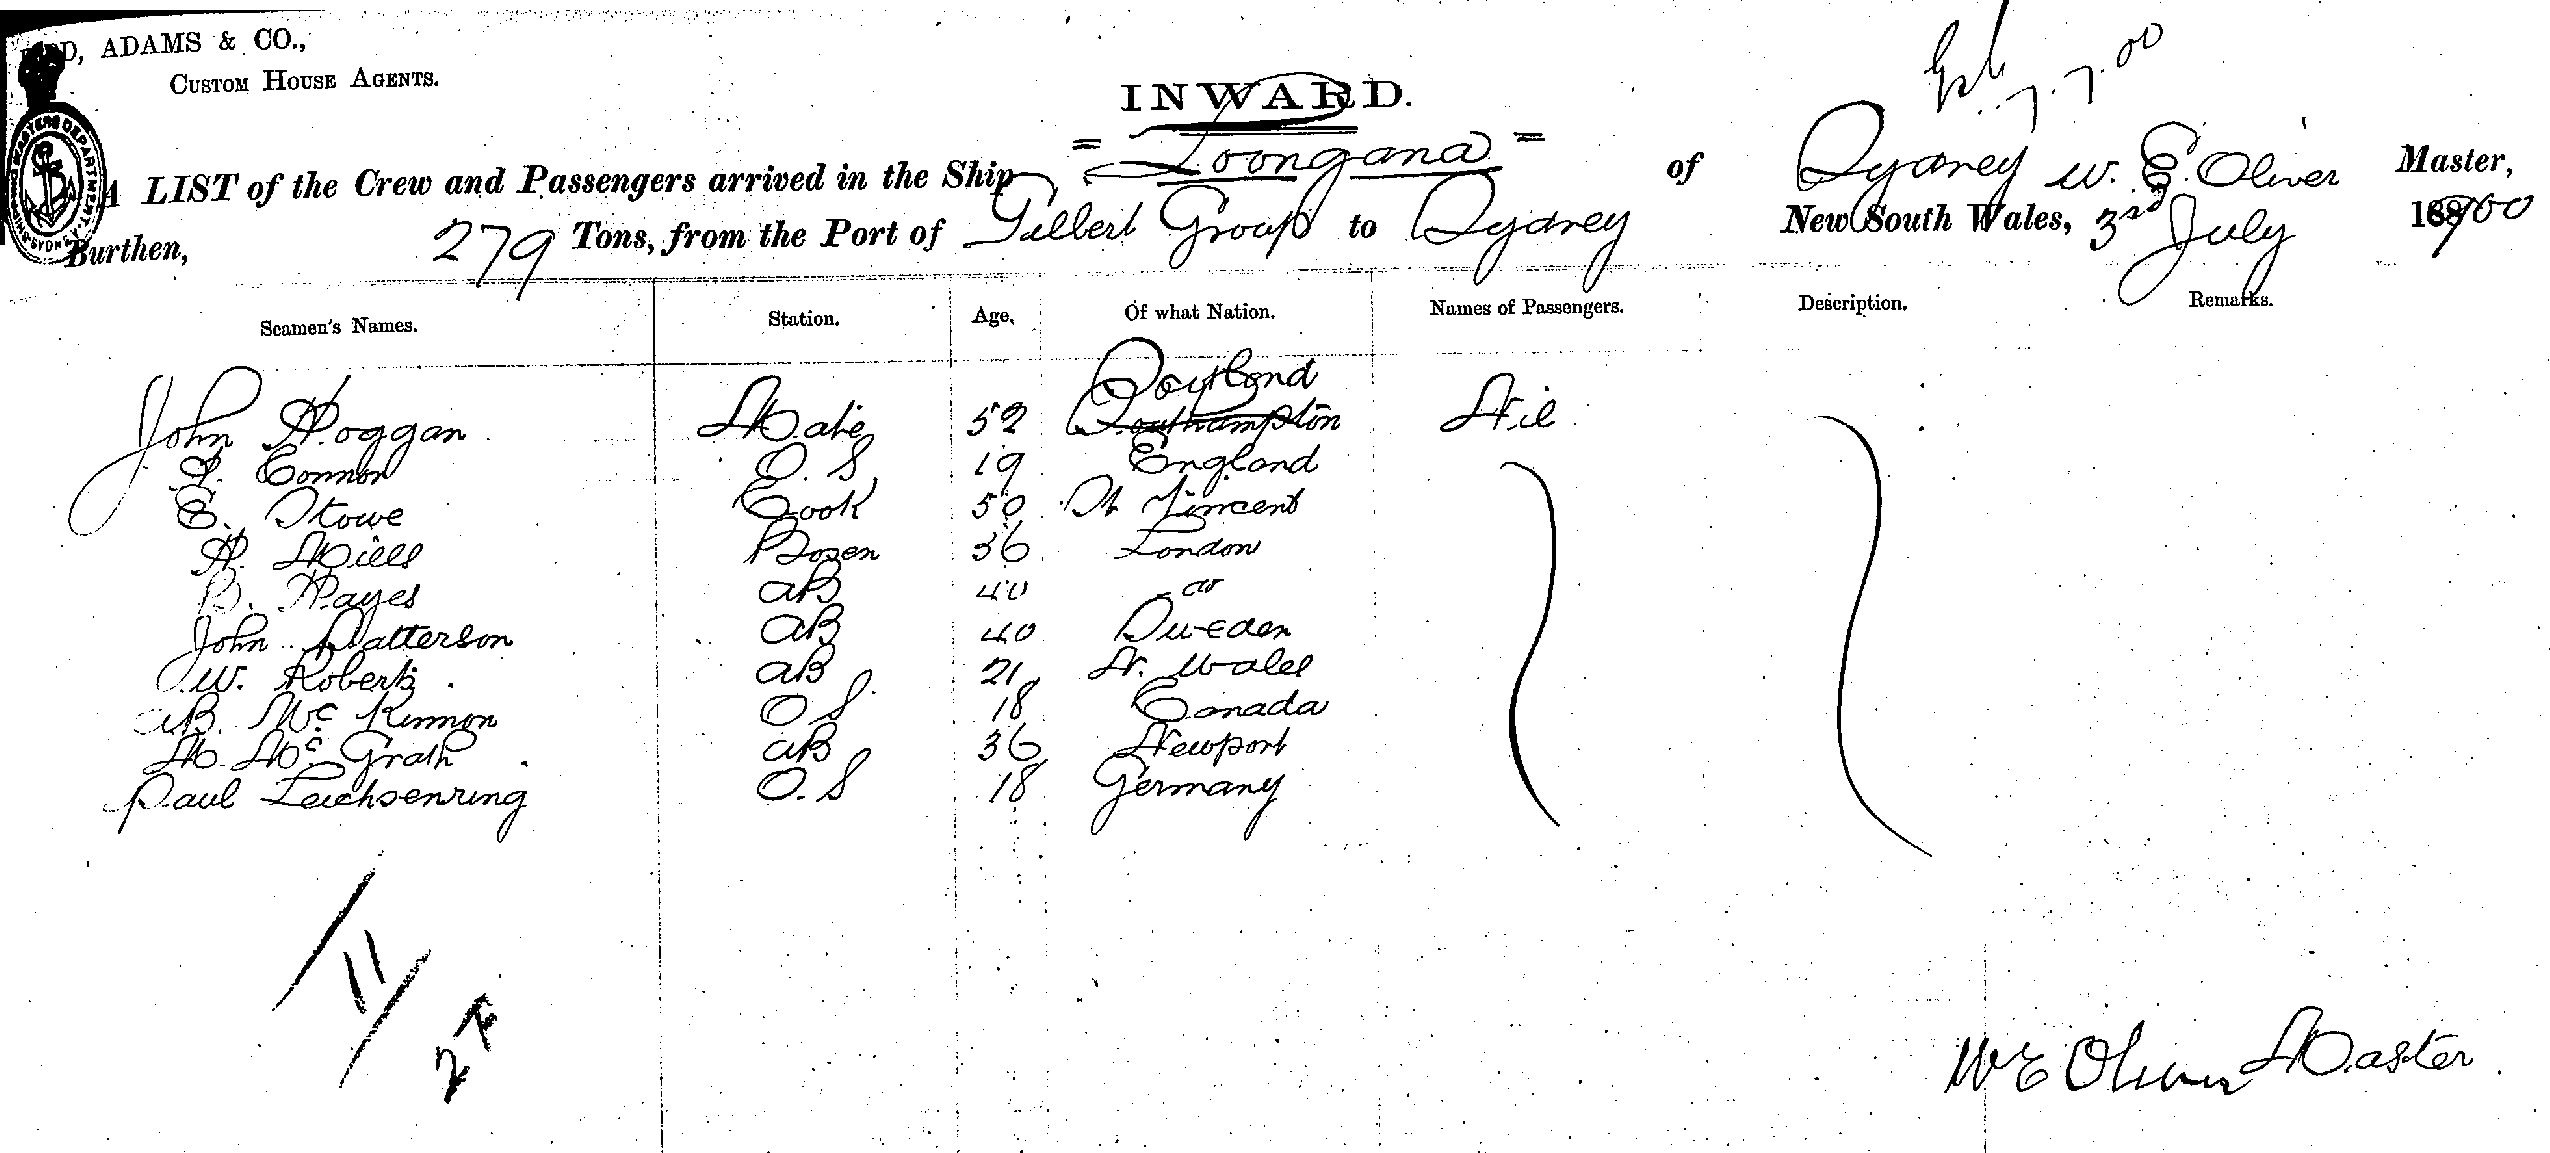 ADAMS & CO.,
CUSTOM HOUSE AGENTS.
7.7.00
INWARD.
= Loongana =
A LIST of the Crew and Passengers arrived in the Ship of Sydney W. E. Oliver Master,
Burthen, 279 Tons, from the Port of Gilbert Group to Sydney New South Wales, 3rd July 1900
Seamen's Names. Station. Age. Of what Nation. Names of Passengers. Description. Remarks.
Scotland
John Hoggan Mate 52 Southampton Nil
Connor O. S 19 England
E. Stowe Cook 50 St Vincent
H. Mills Bosen 36 London
B. Hayes AB 40 do
John Patterson AB 40 Sweden
W. Roberts AB 21 N. Wales
AB. McKinnon O S 18 Canada
M. McGrath AB 36 Newport
Paul Leichsenring O. S 18 Germany
11
W E Oliver Master